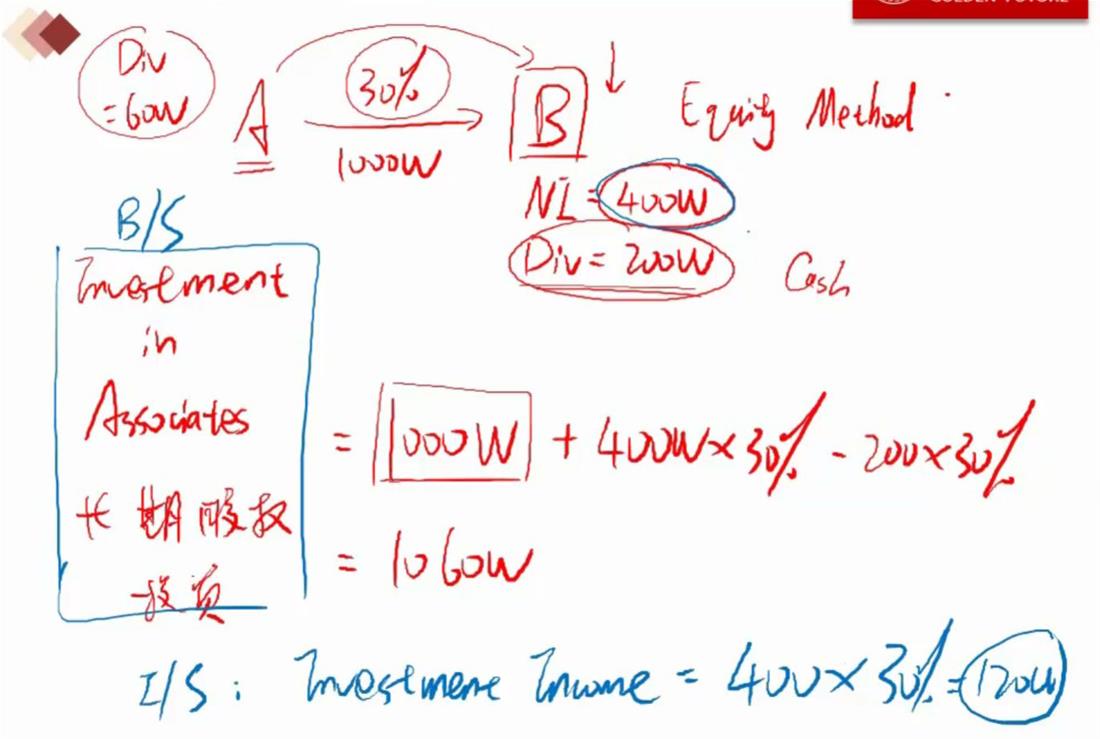 Div
=60W
A
30%
1000W
B
↓
Equity Method
NI = 400W
Div = 200W
Cash
B/S
Investment
in
Associates
长期股权
投资
= 1000W + 400W×30% - 200×30%
= 1060W
I/S: Investment Income = 400×30% = 120W